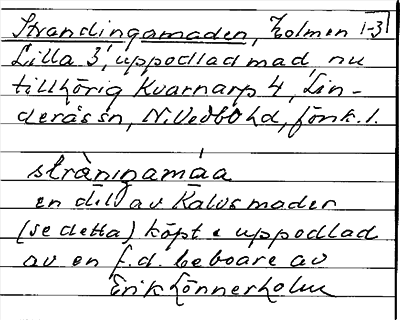 Strandingamaden, Holmen 1-3
Lilla 3, uppodlad mad, nu
tillhörig Kvarnarp 4, Lin-
derås sn, N. Vedbo hd, Jönk. l.
strànıgamáa
en del av Kalvsmader
(se detta) köpt o uppodlad
av en f.d. beboare av
Erik Lönnerholm